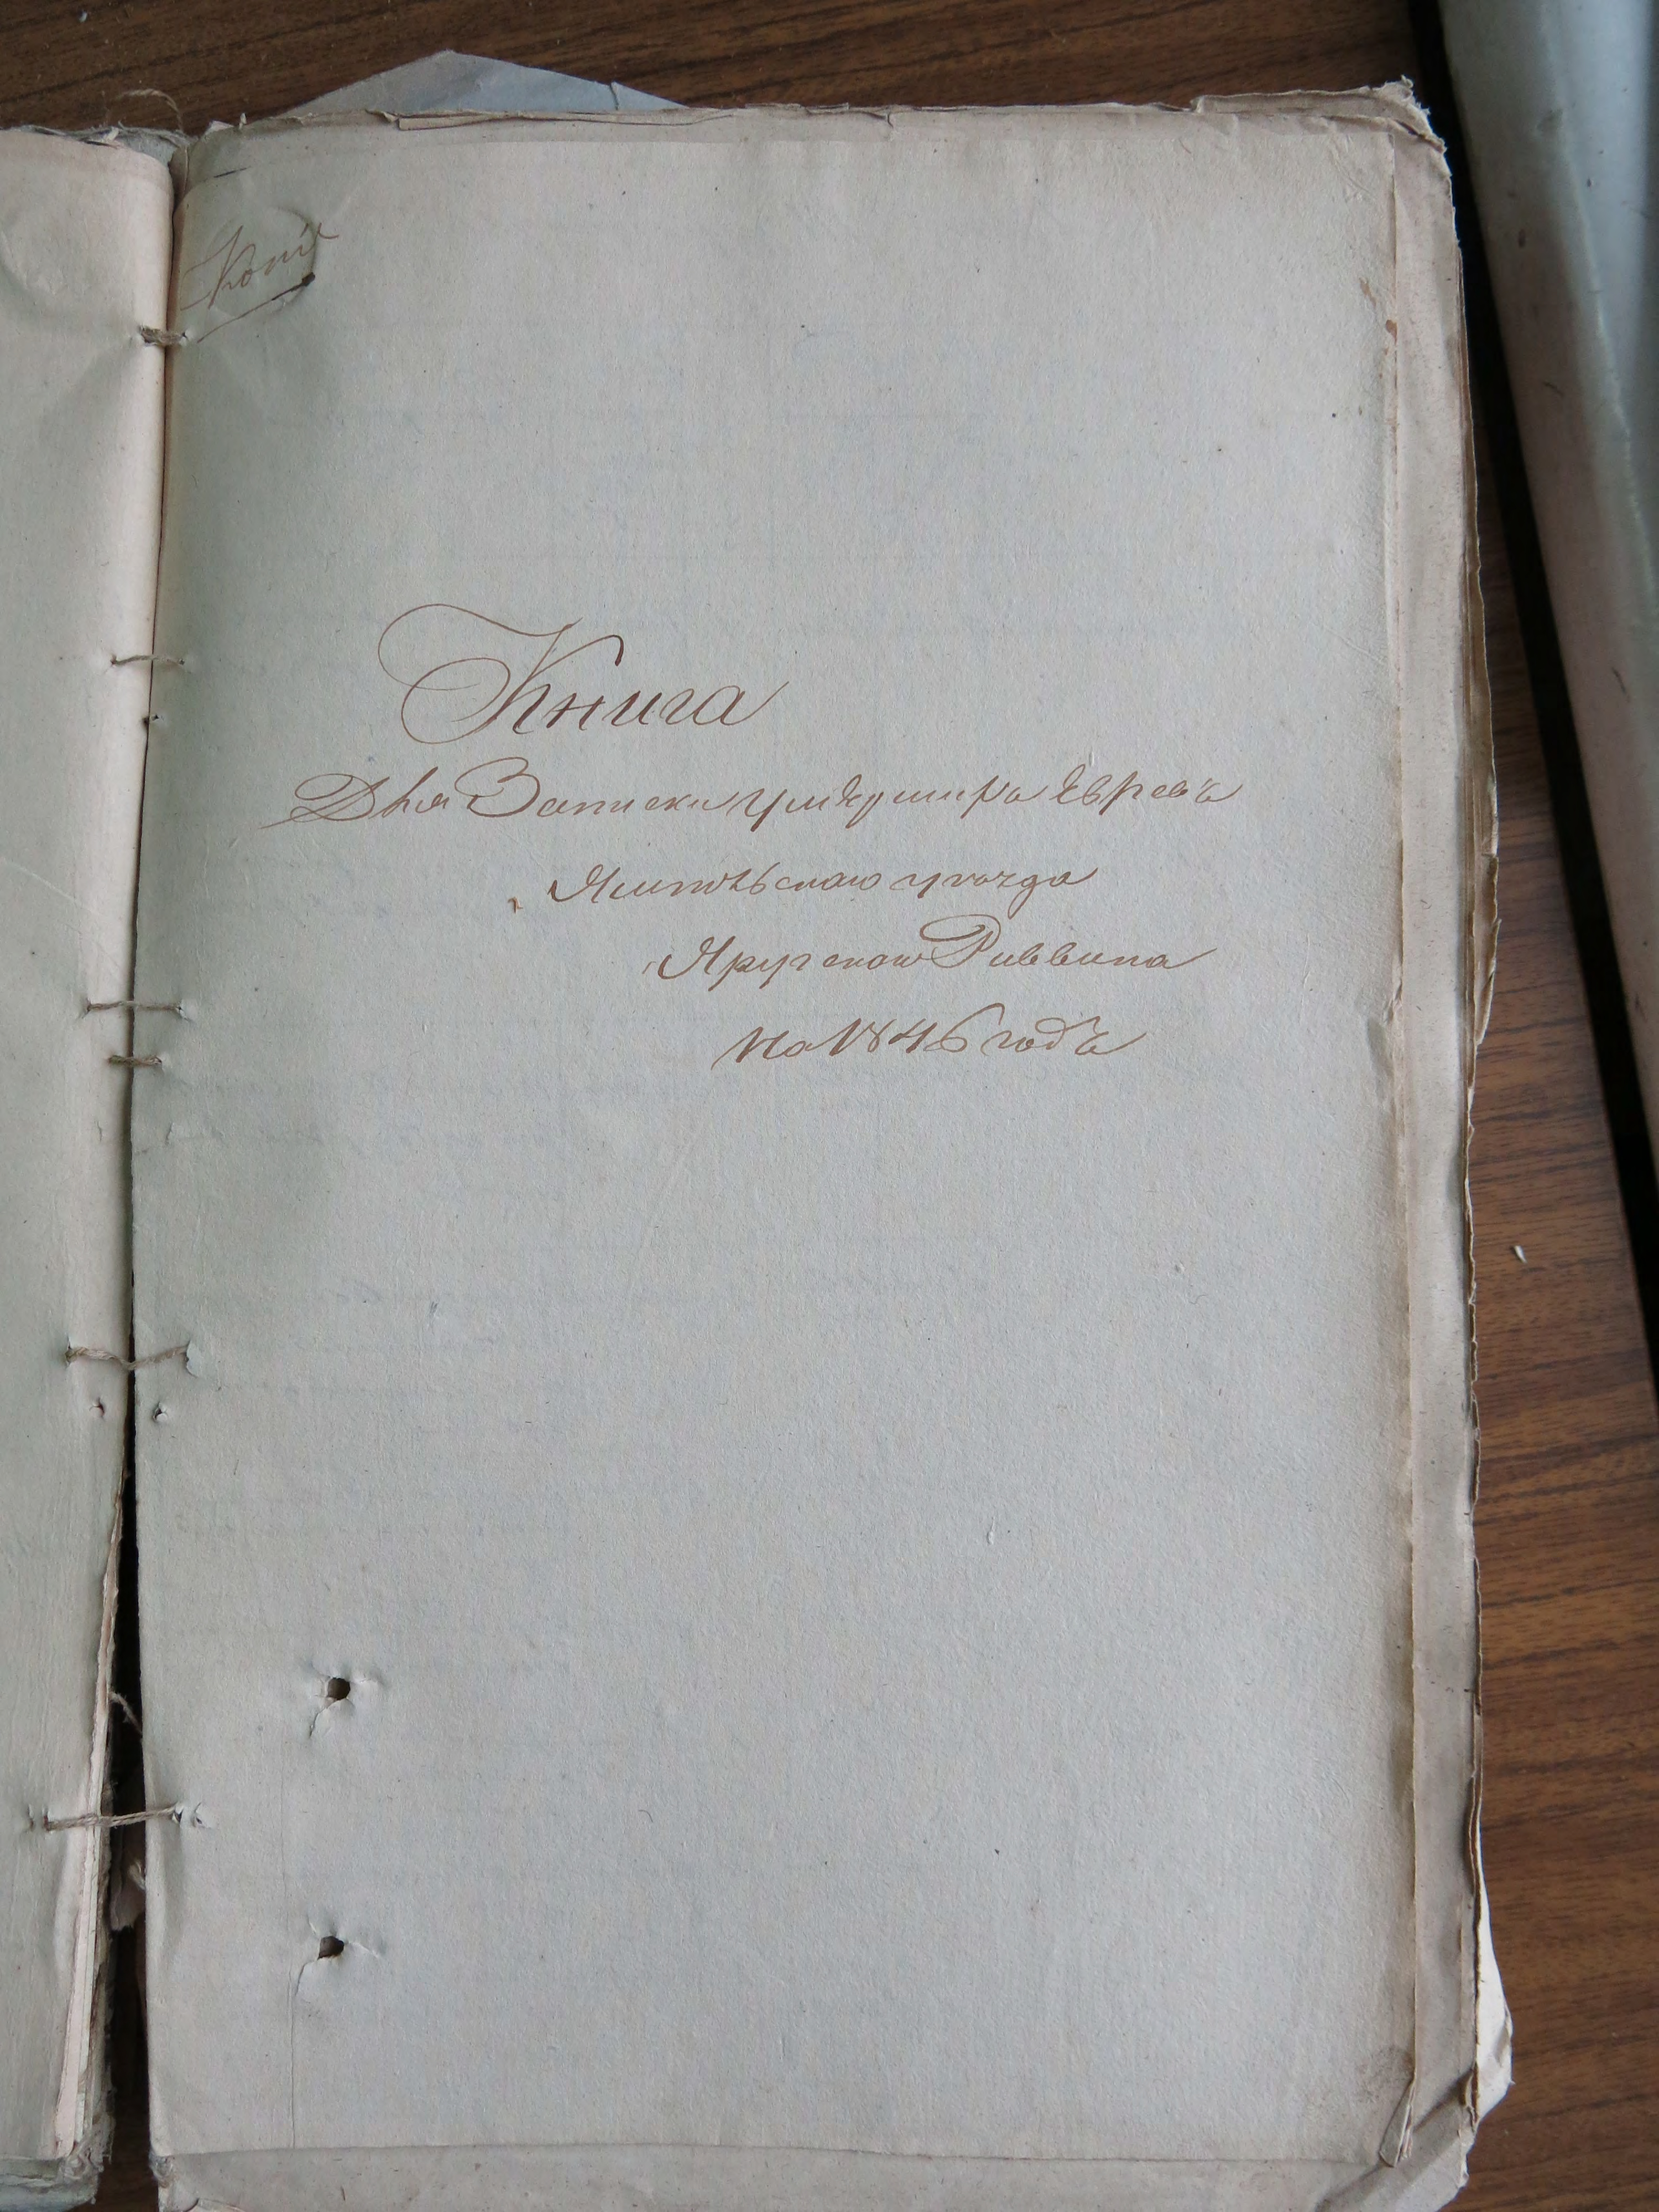 Копіе
Книга
Для Записки Евревъ
Ямпольскаго уѣзда
Яругскаго Раввина
на 1846 годъ